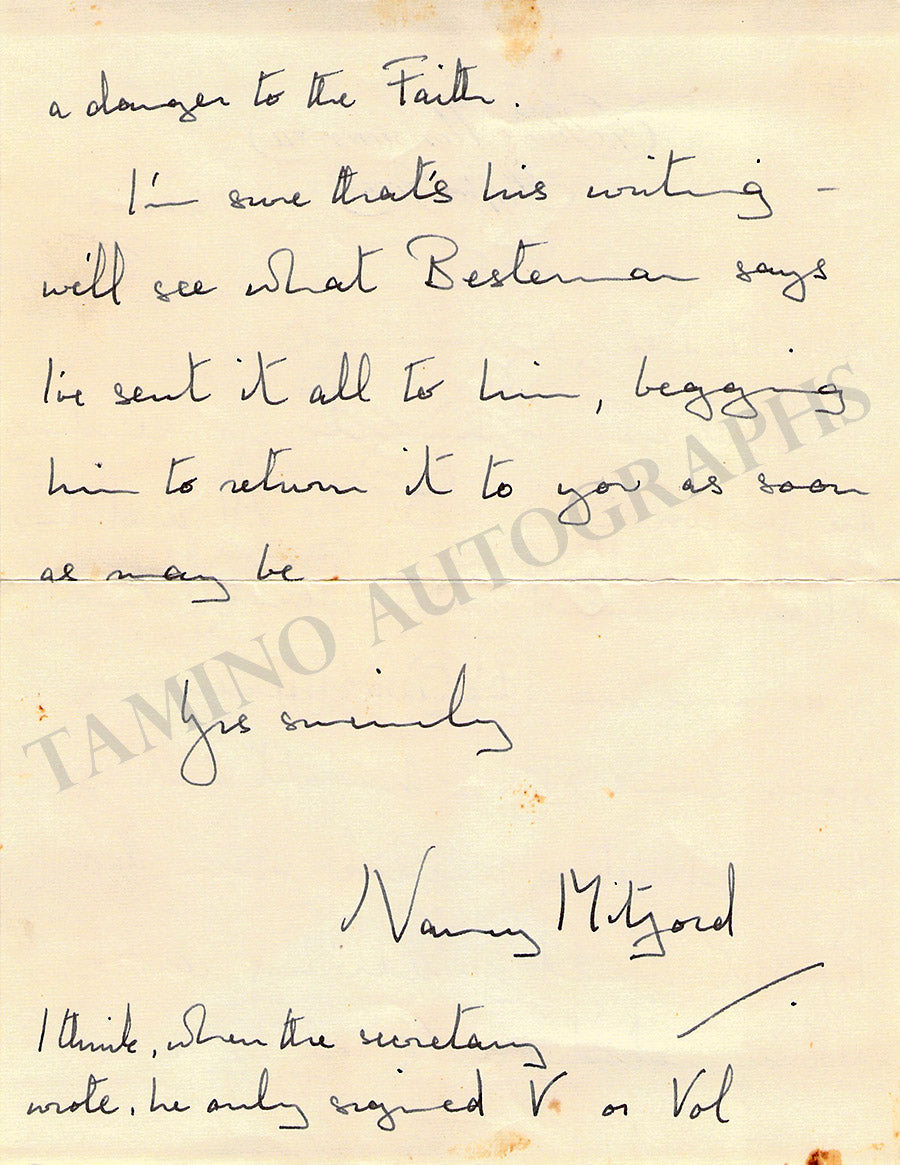 a danger to the Faith.
I'm sure that's his writing –
we'll see what Besterman says
I've sent it all to him, begging
him to return it to you as soon
as may be
Yrs sincerely
Nancy Mitford
I think, when the secretary
wrote, he only signed V or Vol
TAMINO AUTOGRAPHS